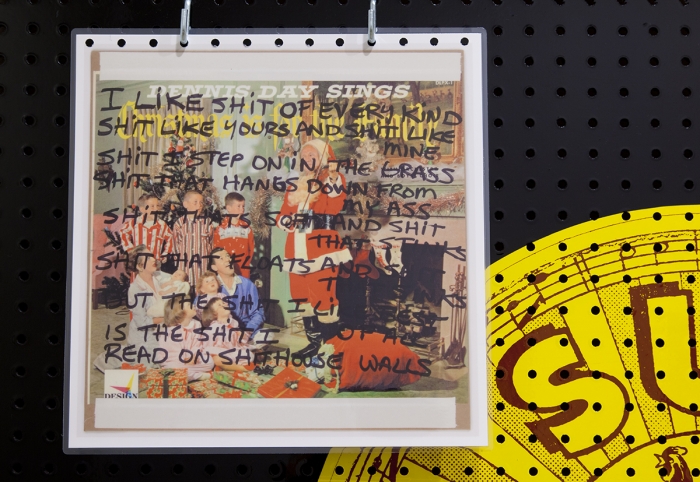 DENNIS DAY SINGS
I LIKE SHIT OF EVERY KIND
SHIT LIKE YOURS AND SHIT LIKE
MINE
SHIT I STEP ON IN THE GRASS
SHIT THAT HANGS DOWN FROM
MY ASS
SHIT THATS SOFT AND SHIT
THAT
SHIT THAT FLOATS AND
BUT THE SHIT I
IS THE SHIT I
READ ON SHITHOUSE WALLS
DESIGN
SU